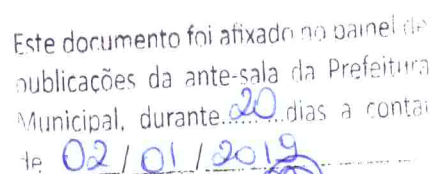 Este documento foi afixado no painel de
publicações da ante-sala da Prefeitura
Municipal, durante 20 dias a contar
de 02/01/2019